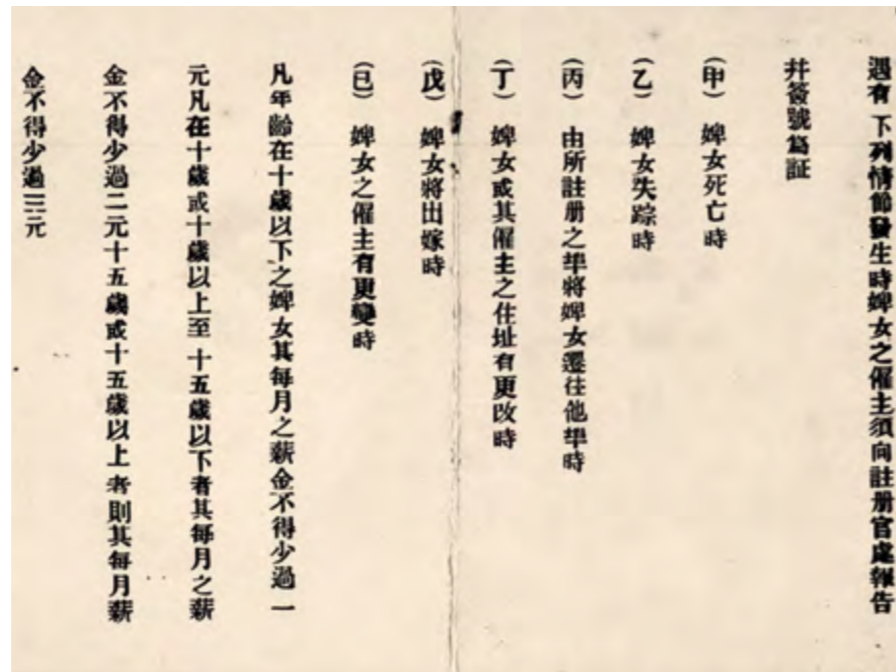 遇有下列情節發生時婢女之僱主須向註册官處報告
幷簽號爲証
（甲） 婢女死亡時
（乙） 婢女失踪時
（丙） 由所註册之埠將婢女遷往他埠時
（丁） 婢女或其僱主之住址有更改時
（戊） 婢女將出嫁時
（已） 婢女之僱主有更變時
凡年齡在十歲以下之婢女其每月之薪金不得少過一
元凡在十歲或十歲以上至十五歲以下者其每月之薪
金不得少過二元十五歲或十五歲以上者則其每月薪
金不得少過三元